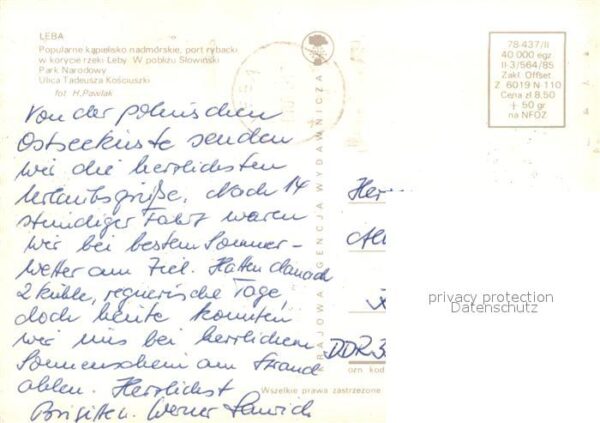 ŁEBA
Popularne kąpielisko nadmorskie, port rybacki
w korycie rzeki Łeby. W pobliżu Słowiński
Park Narodowy
Ulica Tadeusza Kościuszki
fot. H. Pawlak
78-437/II
40 000 egz
II-3/564/85
Zakł. Offset.
Z 6019 N-110
Cena zł 8,50
+ 50 gr
na NFOZ
KRAJOWA AGENCJA WYDAWNICZA
Von der polnischen
Ostseeküste senden
wir die herzlichsten
Urlaubsgrüße. Nach 14
stündiger Fahrt waren
wir bei bestem Sommer-
wetter am Ziel. Hatten danach
2 kühle, regnerische Tage,
doch heute konnten
wir uns bei herrlichem
Sonnenschein am Strand
aalen. Herzlichst
Brigitte u. Werner
Her
DDR 3
ozn kod
Wszelkie prawa zastrzeżone
privacy protection
Datenschutz